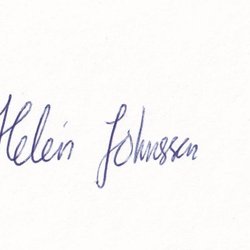 Helen Johnssen